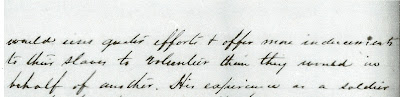 would use greater efforts & offer more inducements
to their slaves to volunteer than they would in
behalf of another. His experience as a soldier